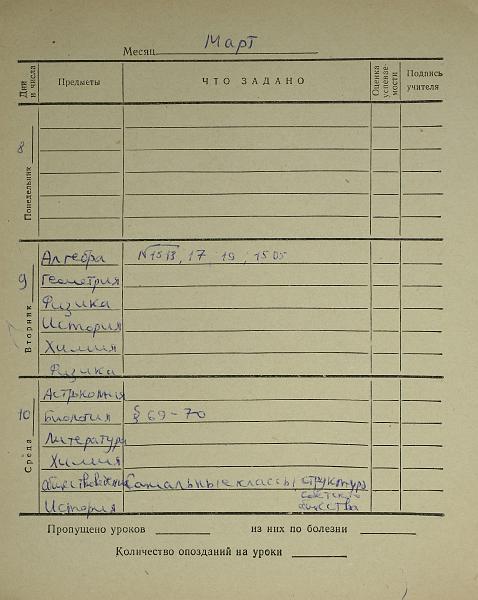 Месяц Март
Дни и числа Предметы ЧТО ЗАДАНО Оценка успевае-мости Подпись учителя
Понедельник 8
Вторник 9
Алгебра №1513, 17, 19, 1505
Геометрия
Физика
История
Химия
Физика
Среда 10
Астрономия
Биология § 69-70
Литература
Химия
Обществоведение Социальные классы структура
советского
История общества
Пропущено уроков из них по болезни
Количество опозданий на уроки